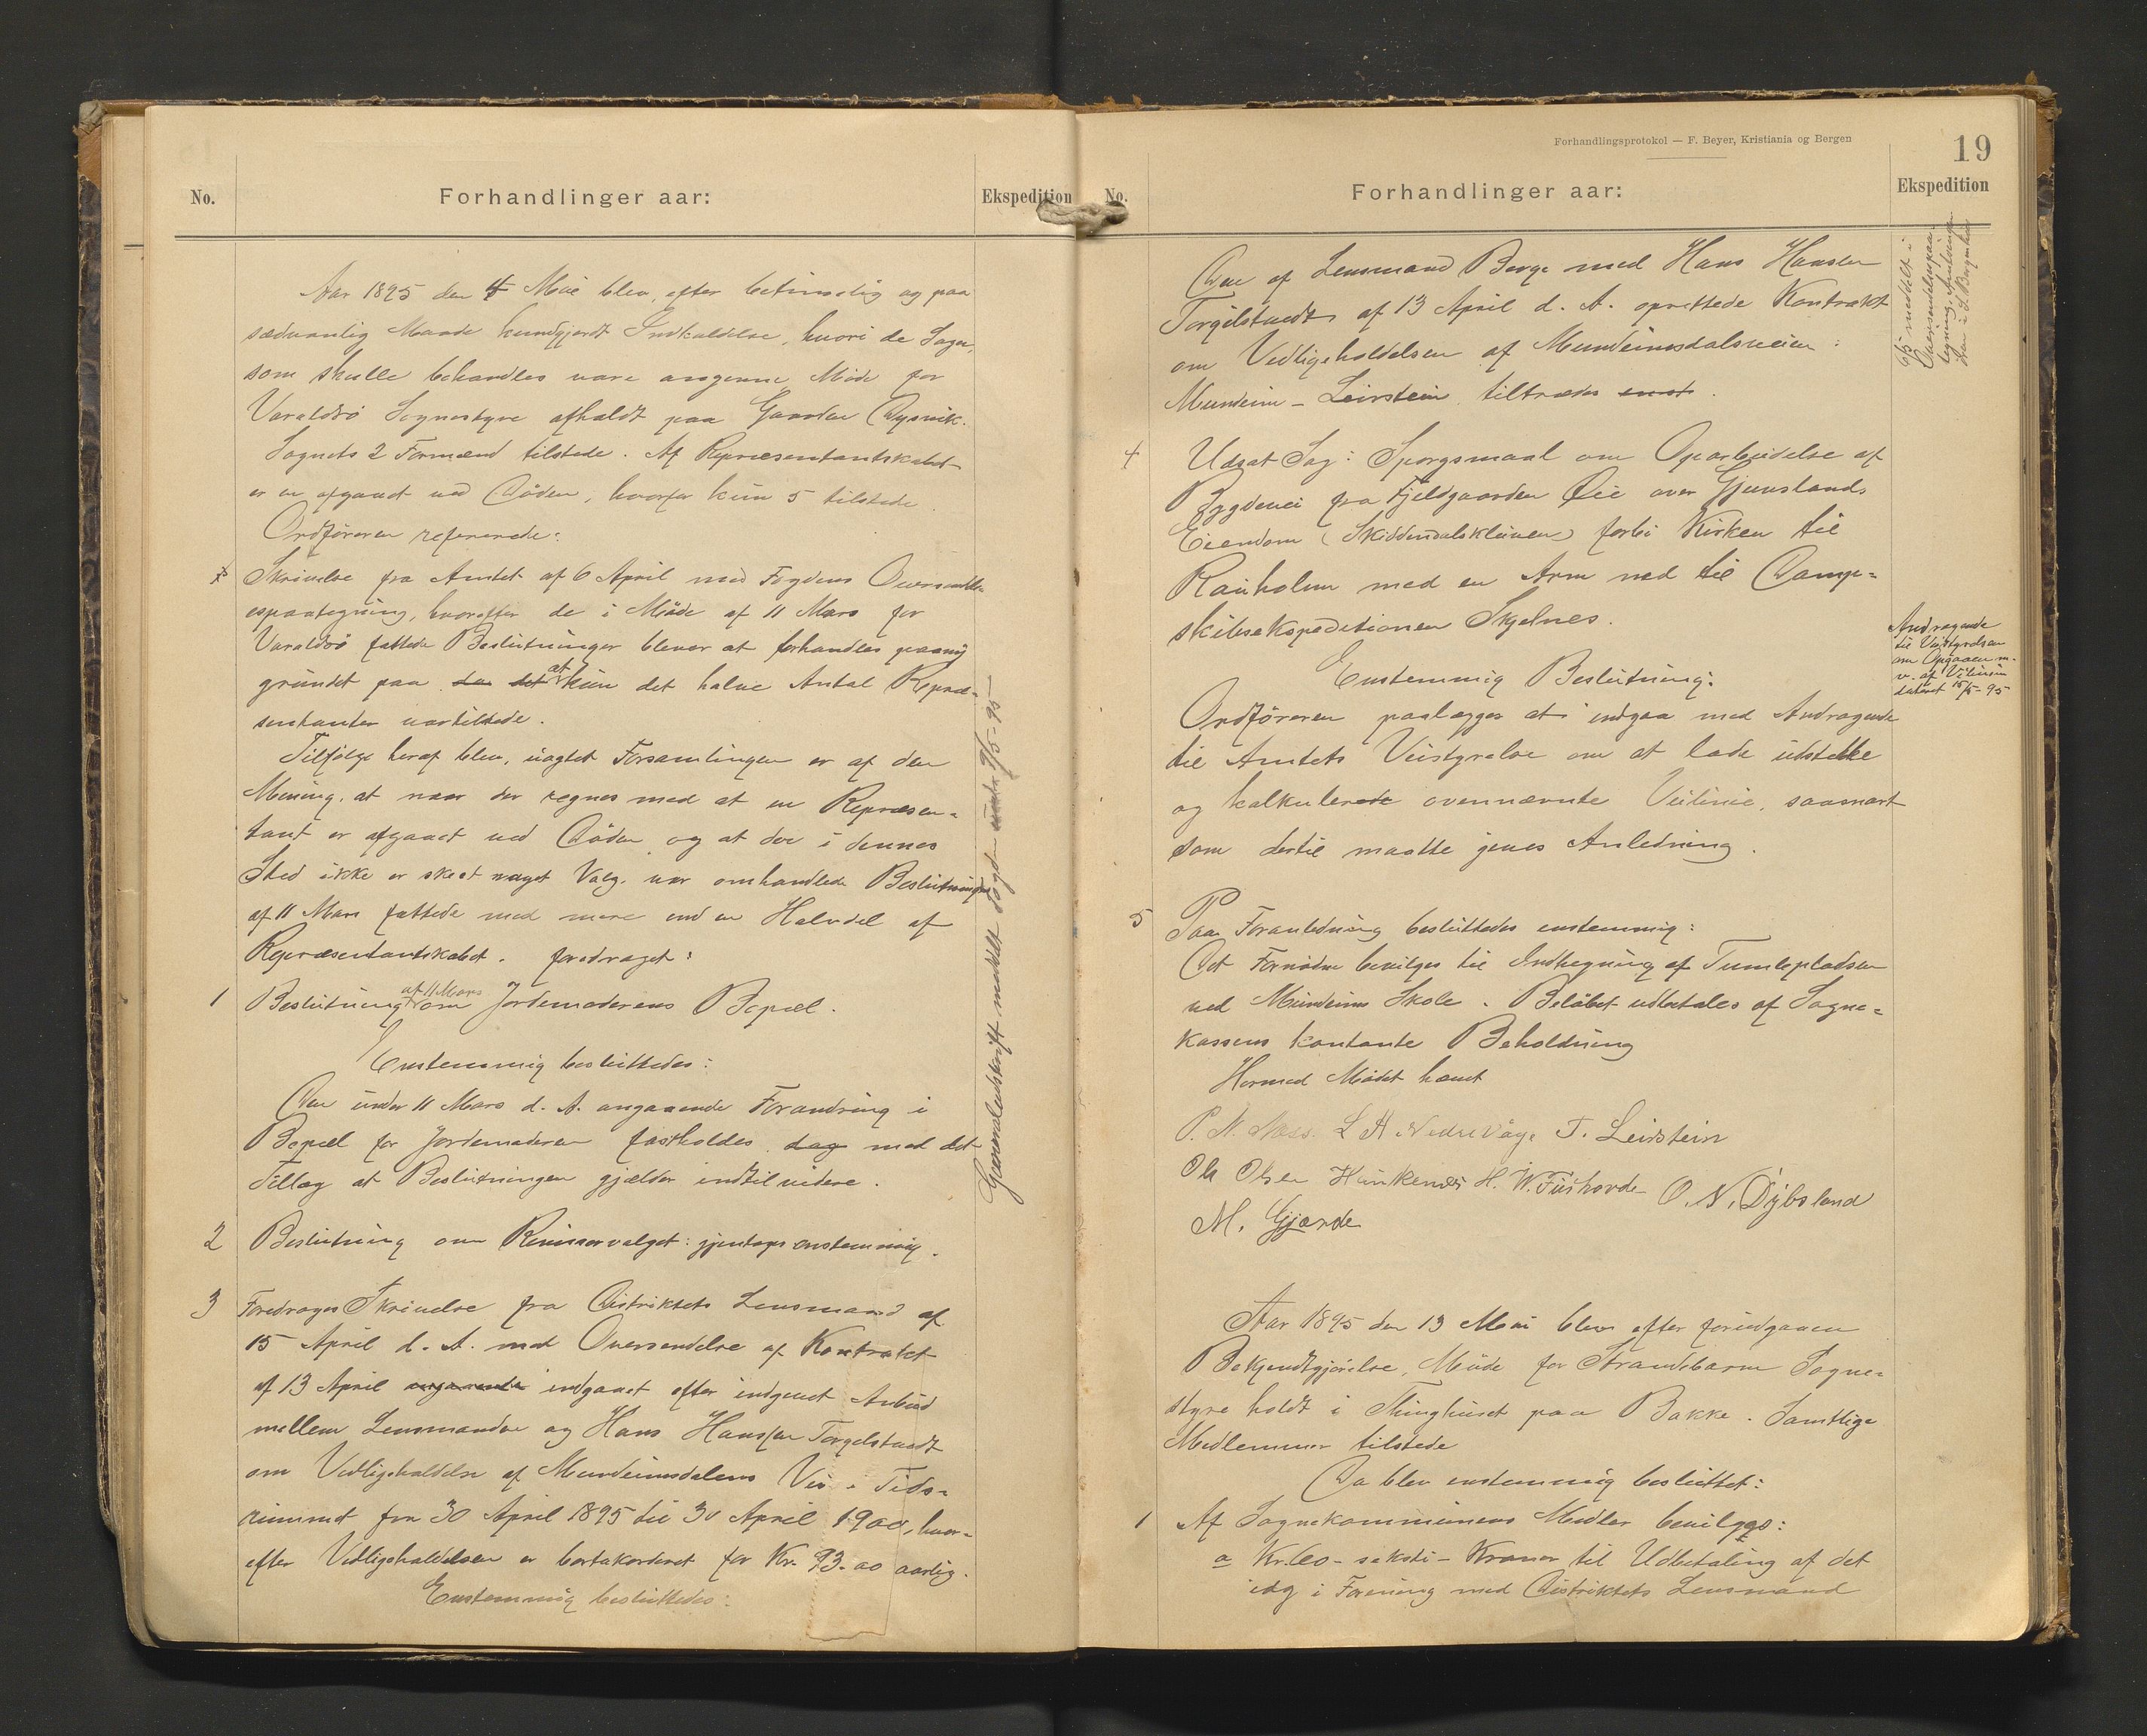 No.
Forhandlinger aar:
Ekspedition
Aar 1895 den 4 Mai blev, efter betimelig og paa
sædvanlig Maade kundgjordt Indkaldelse, hvori de Sager,
som skulle behandles vare angivne, Möde for
Varaldsö Sognestyre afholdt paa Gaarden Dysvik.
Sognets 2 Formænd tilstede. Af Repræsentantskabet
er en afgaaet ved Döden, hvorfor kun 5 tilstede.
Ordföreren refererede:
Skrivelse fra Amtet af 6 April med Fogdens Oversendel-
espaategning, hvorefter de i Möde af 11 Mars for
Varaldsö fattede Beslutninger blever at forhandles paany
grundet paa da det at kun det halve Antal Repræ-
sentanter var tilstede.
Tilfölge heraf blev, uagtet Forsamlingen er af den
Mening, at naar der regnes med at en Repræsen-
tant er afgaaet ved Döden og at der i dennes
Sted ikke er skeet noget Valg, var omhandlede Beslutninger
af 11 Mars fattede med mere end en Halvdel af
Repræsentantskabet. foredraget:
1 Beslutning af 11 Mars om Jordemoderens Bopæl.
Enstemmig besluttedes:
Den under 11 Mars d. A. angaaende Forandring i
Bopæl for Jordemoderen fastholdes dog med det
Tillæg at Beslutningen gjælder indtil videre.
2 Beslutning om Revisorvalget: gjentages enstemmig.
3 Foredrages Skrivelse fra Distriktets Lensmand af
15 April d. A. med Oversendelse af Kontrakt
af 13 April angaaende indgaaet efter indgivet Anbud
mellem Lensmanden og Hans Hanssen Torgelstvedt
om Vedligeholdelse af Mundeimsdalens Vei i Tids-
rummet fra 30 April 1895 til 30 April 1900, hvor-
efter Vedligeholdelsen er bortakorderet for Kr. 93.00 aarlig.
Enstemmig besluttedes:
Forhandlingsprotokol — F. Beyer, Kristiania og Bergen
19
No.
Forhandlinger aar:
Ekspedition
Den af Lensmand Berge med Hans Hansen
Torgilstvedt af 13 April d. A. oprettede Kontrakt
om Vedligeholdelsen af Mundeimsdalsveien:
Mundeim - Leirstein tiltrædes enst.
4 Udsat Sag: Spørgsmaal om Oparbeidelse af
Bygdevei fra Fjeldgaarden Øie over Gjunslands
Eiendom (Skiddendalskleiven) forbi Kirken til
Rauholm med en Arm ned til Damp-
skibsekspeditionen Skjelnes.
Enstemmig Beslutning:
Ordföreren paalægges at indgaa med Andragende
til Amtets Veistyrelse om at lade udstikke
og kalkulerede ovennævnte Veilinie, saasnart
som dertil maatte gives Anledning.
Andragende
til Veistyrelsen
om Opgaaen m.
v. af Veilinien
dateret 15/5-95
5 Paa Foranledning besluttedes enstemmig:
Det Fornødne bevilges til Indhegning af Tumlepladsen
ved Mundeims Skole. Belöbet udbetales af Sogne-
kassens kontante Beholdning
Hermed Mödet hævet
P. N. Næss. L A Nedrevåge T. Leirstein
Ole Olsen Hunkenæs H. W. Fushovde O. N. Dybsland
M. Gjærde
Aar 1895 den 13 Mai blev efter foriudgaaen
Bekjendtgjörelse, Möde for Strandebarm Sogne-
styre holdt i Thinghuset paa Bakke. Samtlige
Medlemmer tilstede
Da blev enstemmig besluttet:
1 Af Sognekommunens Midler bevilges:
a Kr. 60 - seksti - Kroner til Udbetaling af det
idag i Forening med Distriktets Lensmand